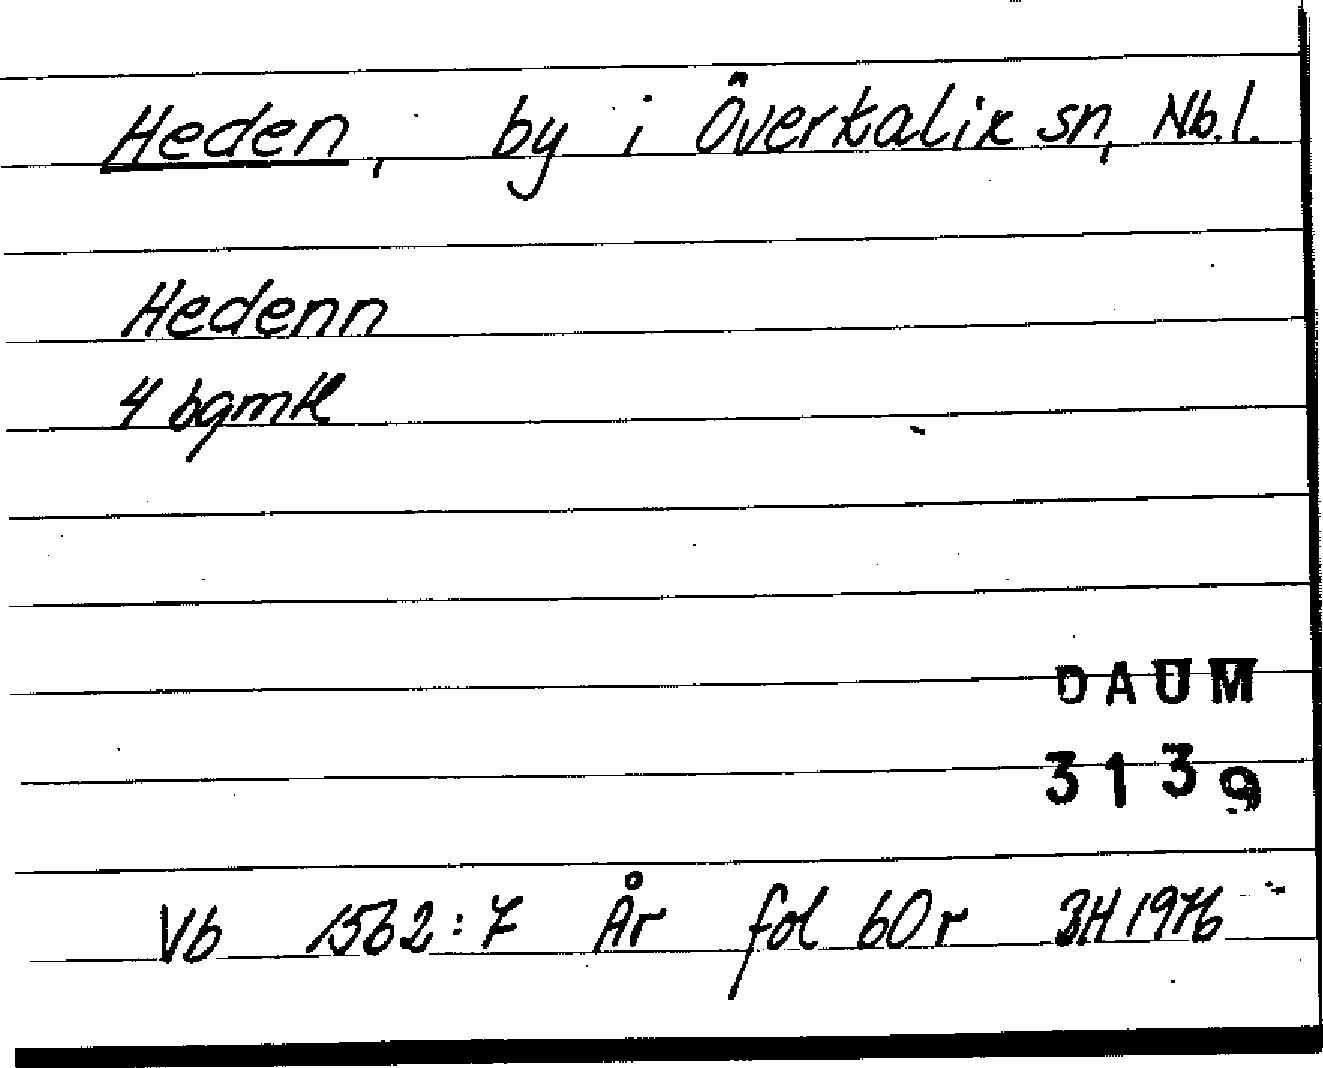 Heden, by i Överkalix sn, Nb.l.
Hedenn
4 bgmtl
DAUM
3139
Vb 1562:7 År fol 60r BH 1976